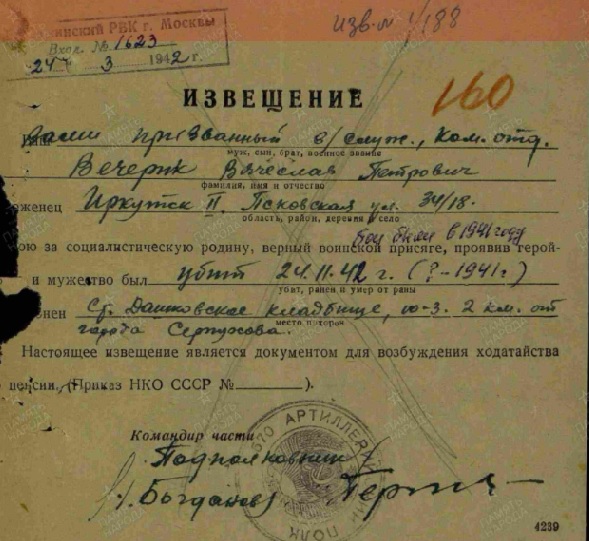 инский РВК г. Москвы
Изв-л 1/188
Вход. № 1623
24 3 1942 г.
ИЗВЕЩЕНИЕ
160
Вами призванный в/служ., ком. отд.
муж, сын, брат, военное звание
Вечерик Вячеслав Петрович
фамилия, имя и отчество
оженец Иркутск II Псковская ул. 34/18.
область, район, деревня и село
бои были в 1941 году
ою за социалистическую родину, верный воинской присяге, проявив герой-
и мужество был убит 24.11.42 г. (?-1941 г)
убит, ранен и умер от раны
онен Ст. Дашковское кладбище, ю-з. 2 км. от
города Серпухова.
место похорон
Настоящее извещение является документом для возбуждения ходатайства
пенсии. (Приказ НКО СССР № ).
Командир части
Подполковник
Богданов
670 АРТИЛЛЕР
ИЙ ПОЛК
4239